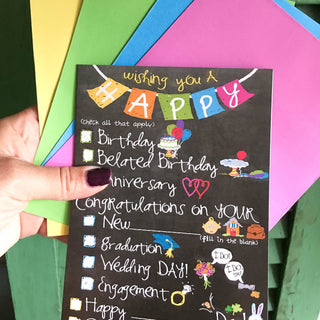 wishing you A
HAPPY
(check all that apply)
Birthday
Belated Birthday
Anniversary
Congratulations on YOUR
New
(fill in the blank)
Graduation
Wedding DAY!
I DO!
I DO!
Engagement
Happy